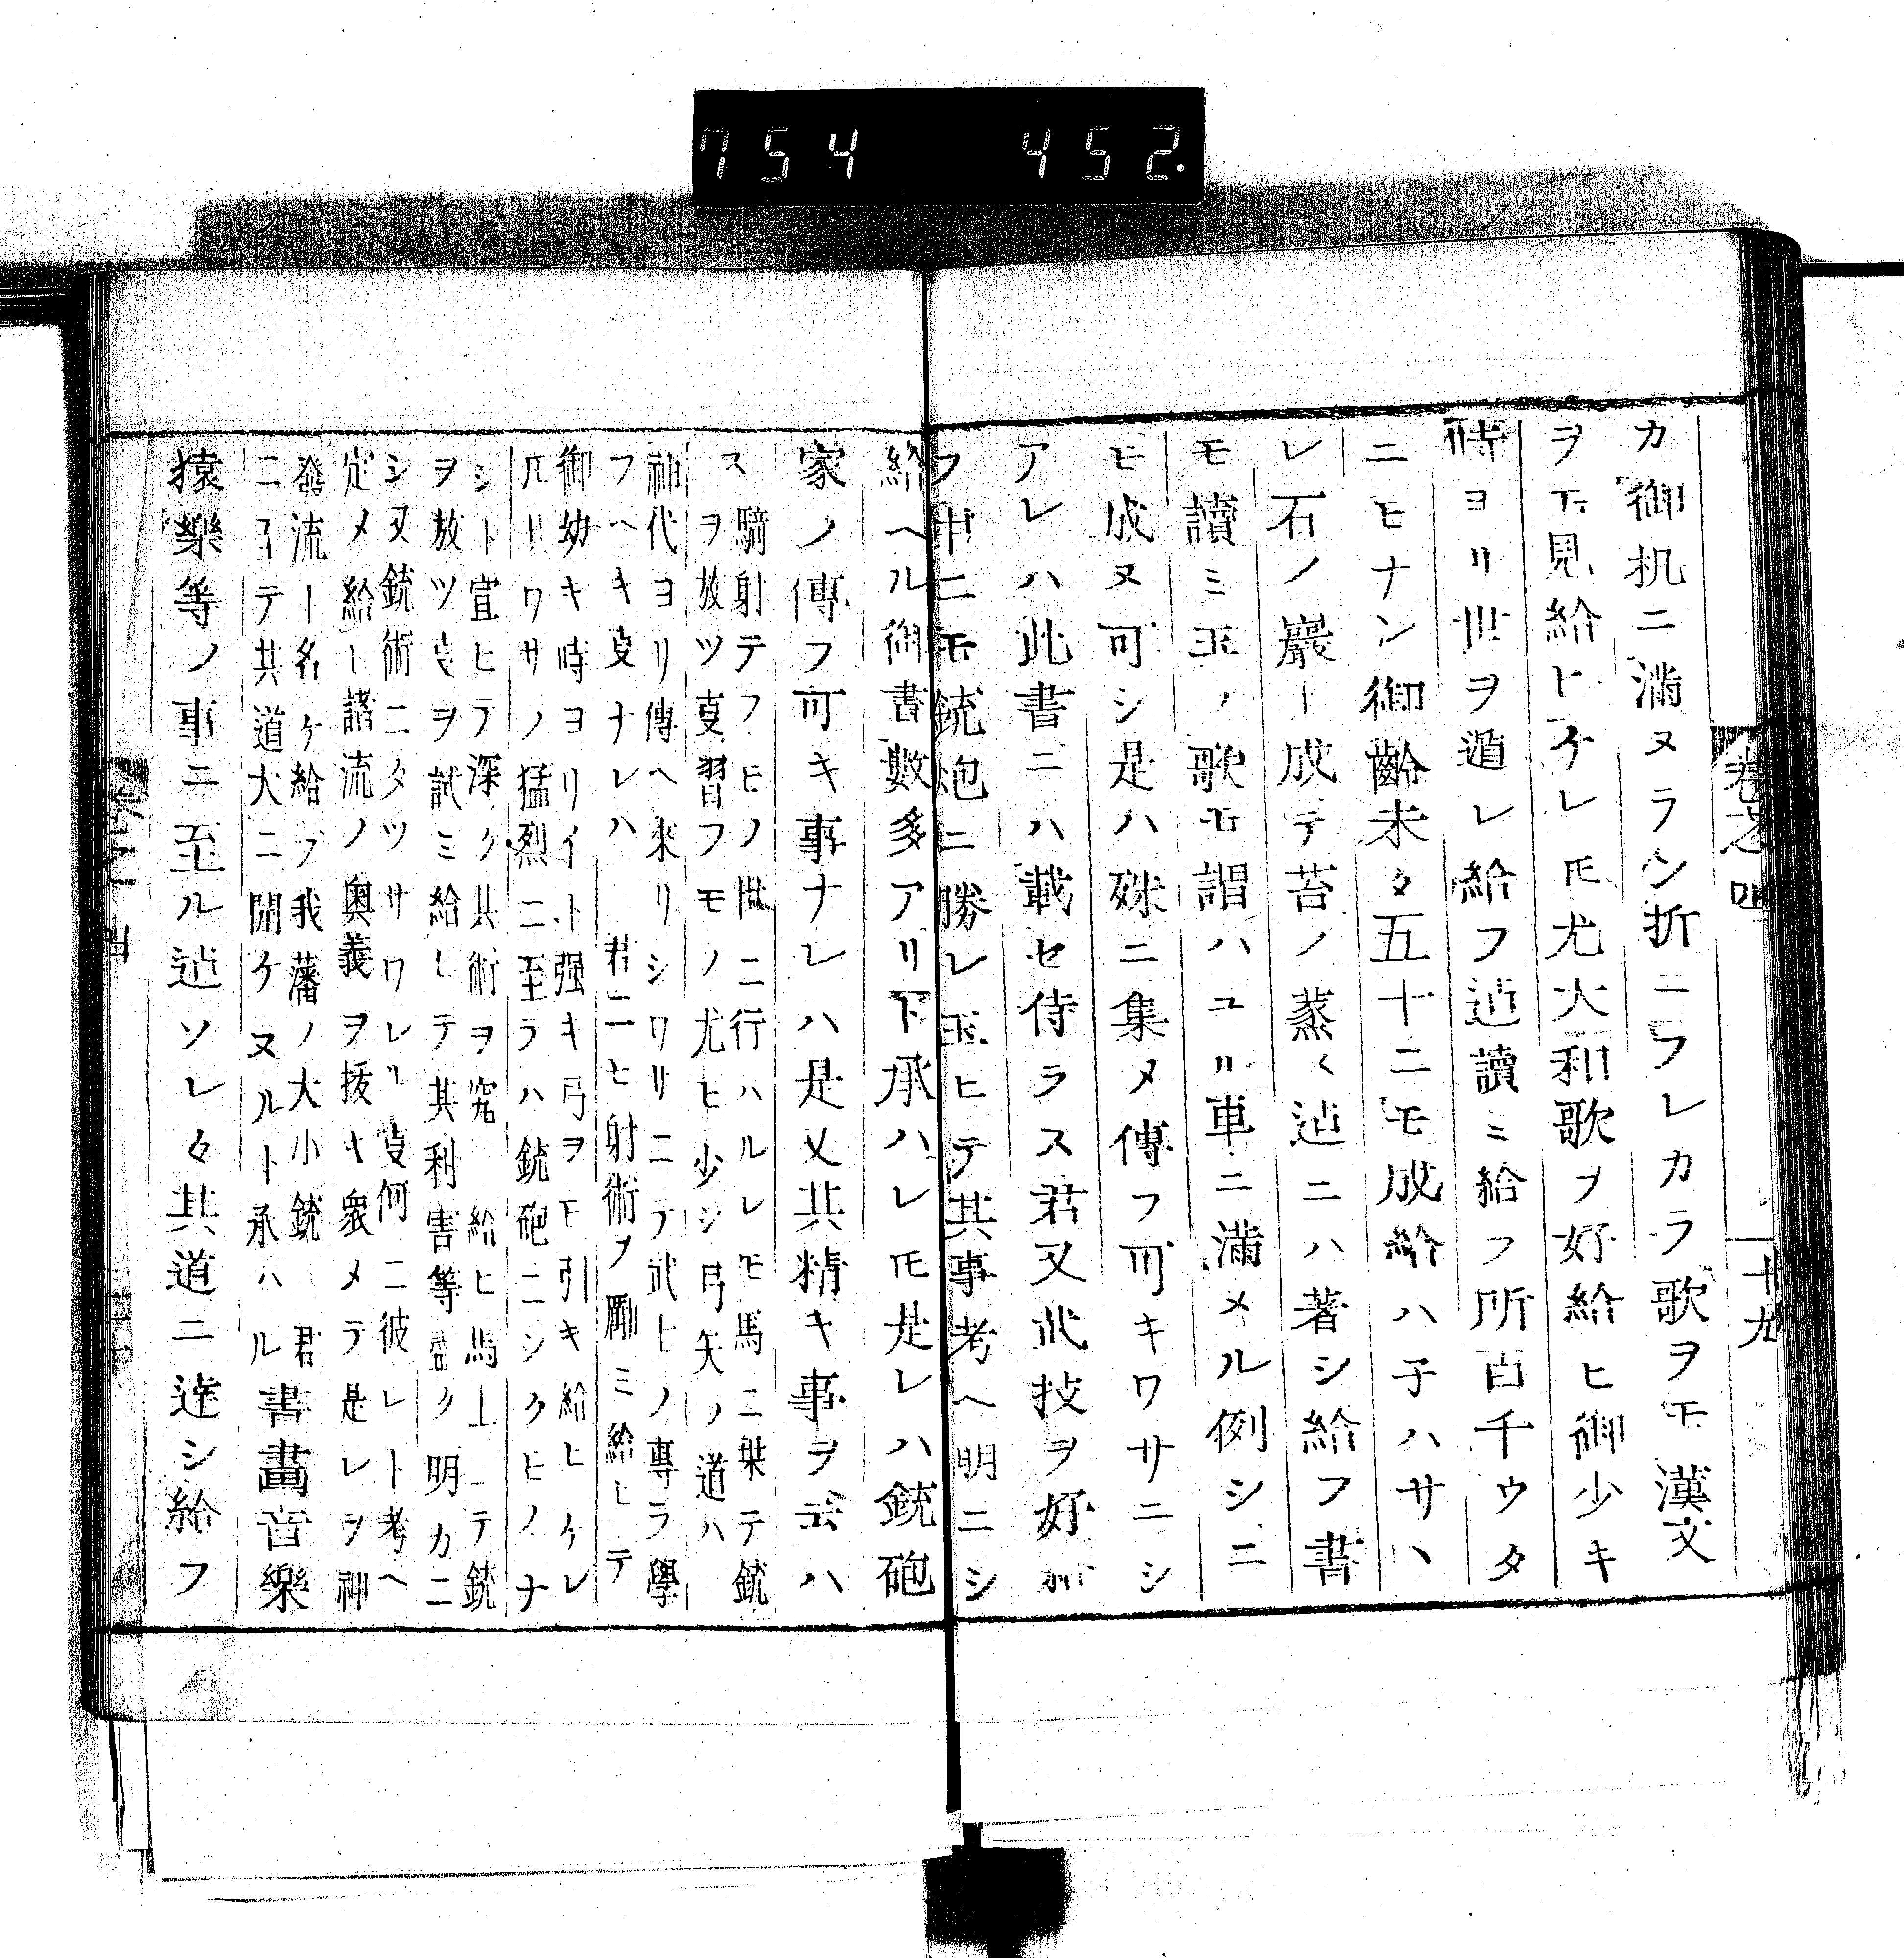 754 452.
卷之四
十九
カ御机ニ滿ヌラン折ニフレカラ歌ヲモ漢文
ヲモ見給ヒケレモ尤大和歌ヲ好給ヒ御少キ
時ヨリ世ヲ遁レ給フ迠讀ミ給フ所百千ウタ
ニヒナン御齡未タ五十ニモ成給ハ子ハサヽ
レ石ノ巖ト成テ苔ノ蒸〻迠ニハ著シ給フ書
モ讀ミ玉ノ歌モ謂ハユル車ニ滿メル例シニ
ヒ成ヌ可シ是ハ殊ニ集メ傳フ可キワサニシ
アレハ此書ニハ載セ侍ラス君又武技ヲ好給
フ中ニモ銃炮ニ勝レ玉ヒテ其事考ヘ明ニシ
給ヘル御書數多アリト承ハレモ是レハ銃砲
家ノ傳フ可キ事ナレハ是又其精キ事ヲ云ハ
ス騎射テフヒノ世ニ行ハルレモ馬ニ椉テ銃
ヲ放ツ㕝習フモノ尤ヒ少シ弓矢ノ道ハ
神代ヨリ傳ヘ來リシワサニテ武士ノ專ラ學
フヘキ㕝ナレハ 君ニヒ射術ヲ勵ミ給ヒテ
御幼キ時ヨリイト强キ弓ヲモ引キ給ヒケレ
𪜈トワサノ猛烈ニ至ラハ銃砲ニシクヒノナ
シト宣ヒテ深ク其術ヲ究 給ヒ馬上ニテ銃
ヲ放ツ㕝ヲ試ミ給ヒテ其利害等盡ク明カニ
シ又銃術ニタツサワレル㕝何ニ彼レト考ヘ
定メ給ヒ諸流ノ奧義ヲ拔キ衆メテ是レヲ神
發流ト名ケ給フ我藩ノ大小銃 君
ニヨテ其道大ニ開ケヌルト承ハル書畫音樂
猿樂等ノ事ニ至ル迠ソレ々其道ニ達シ給フ